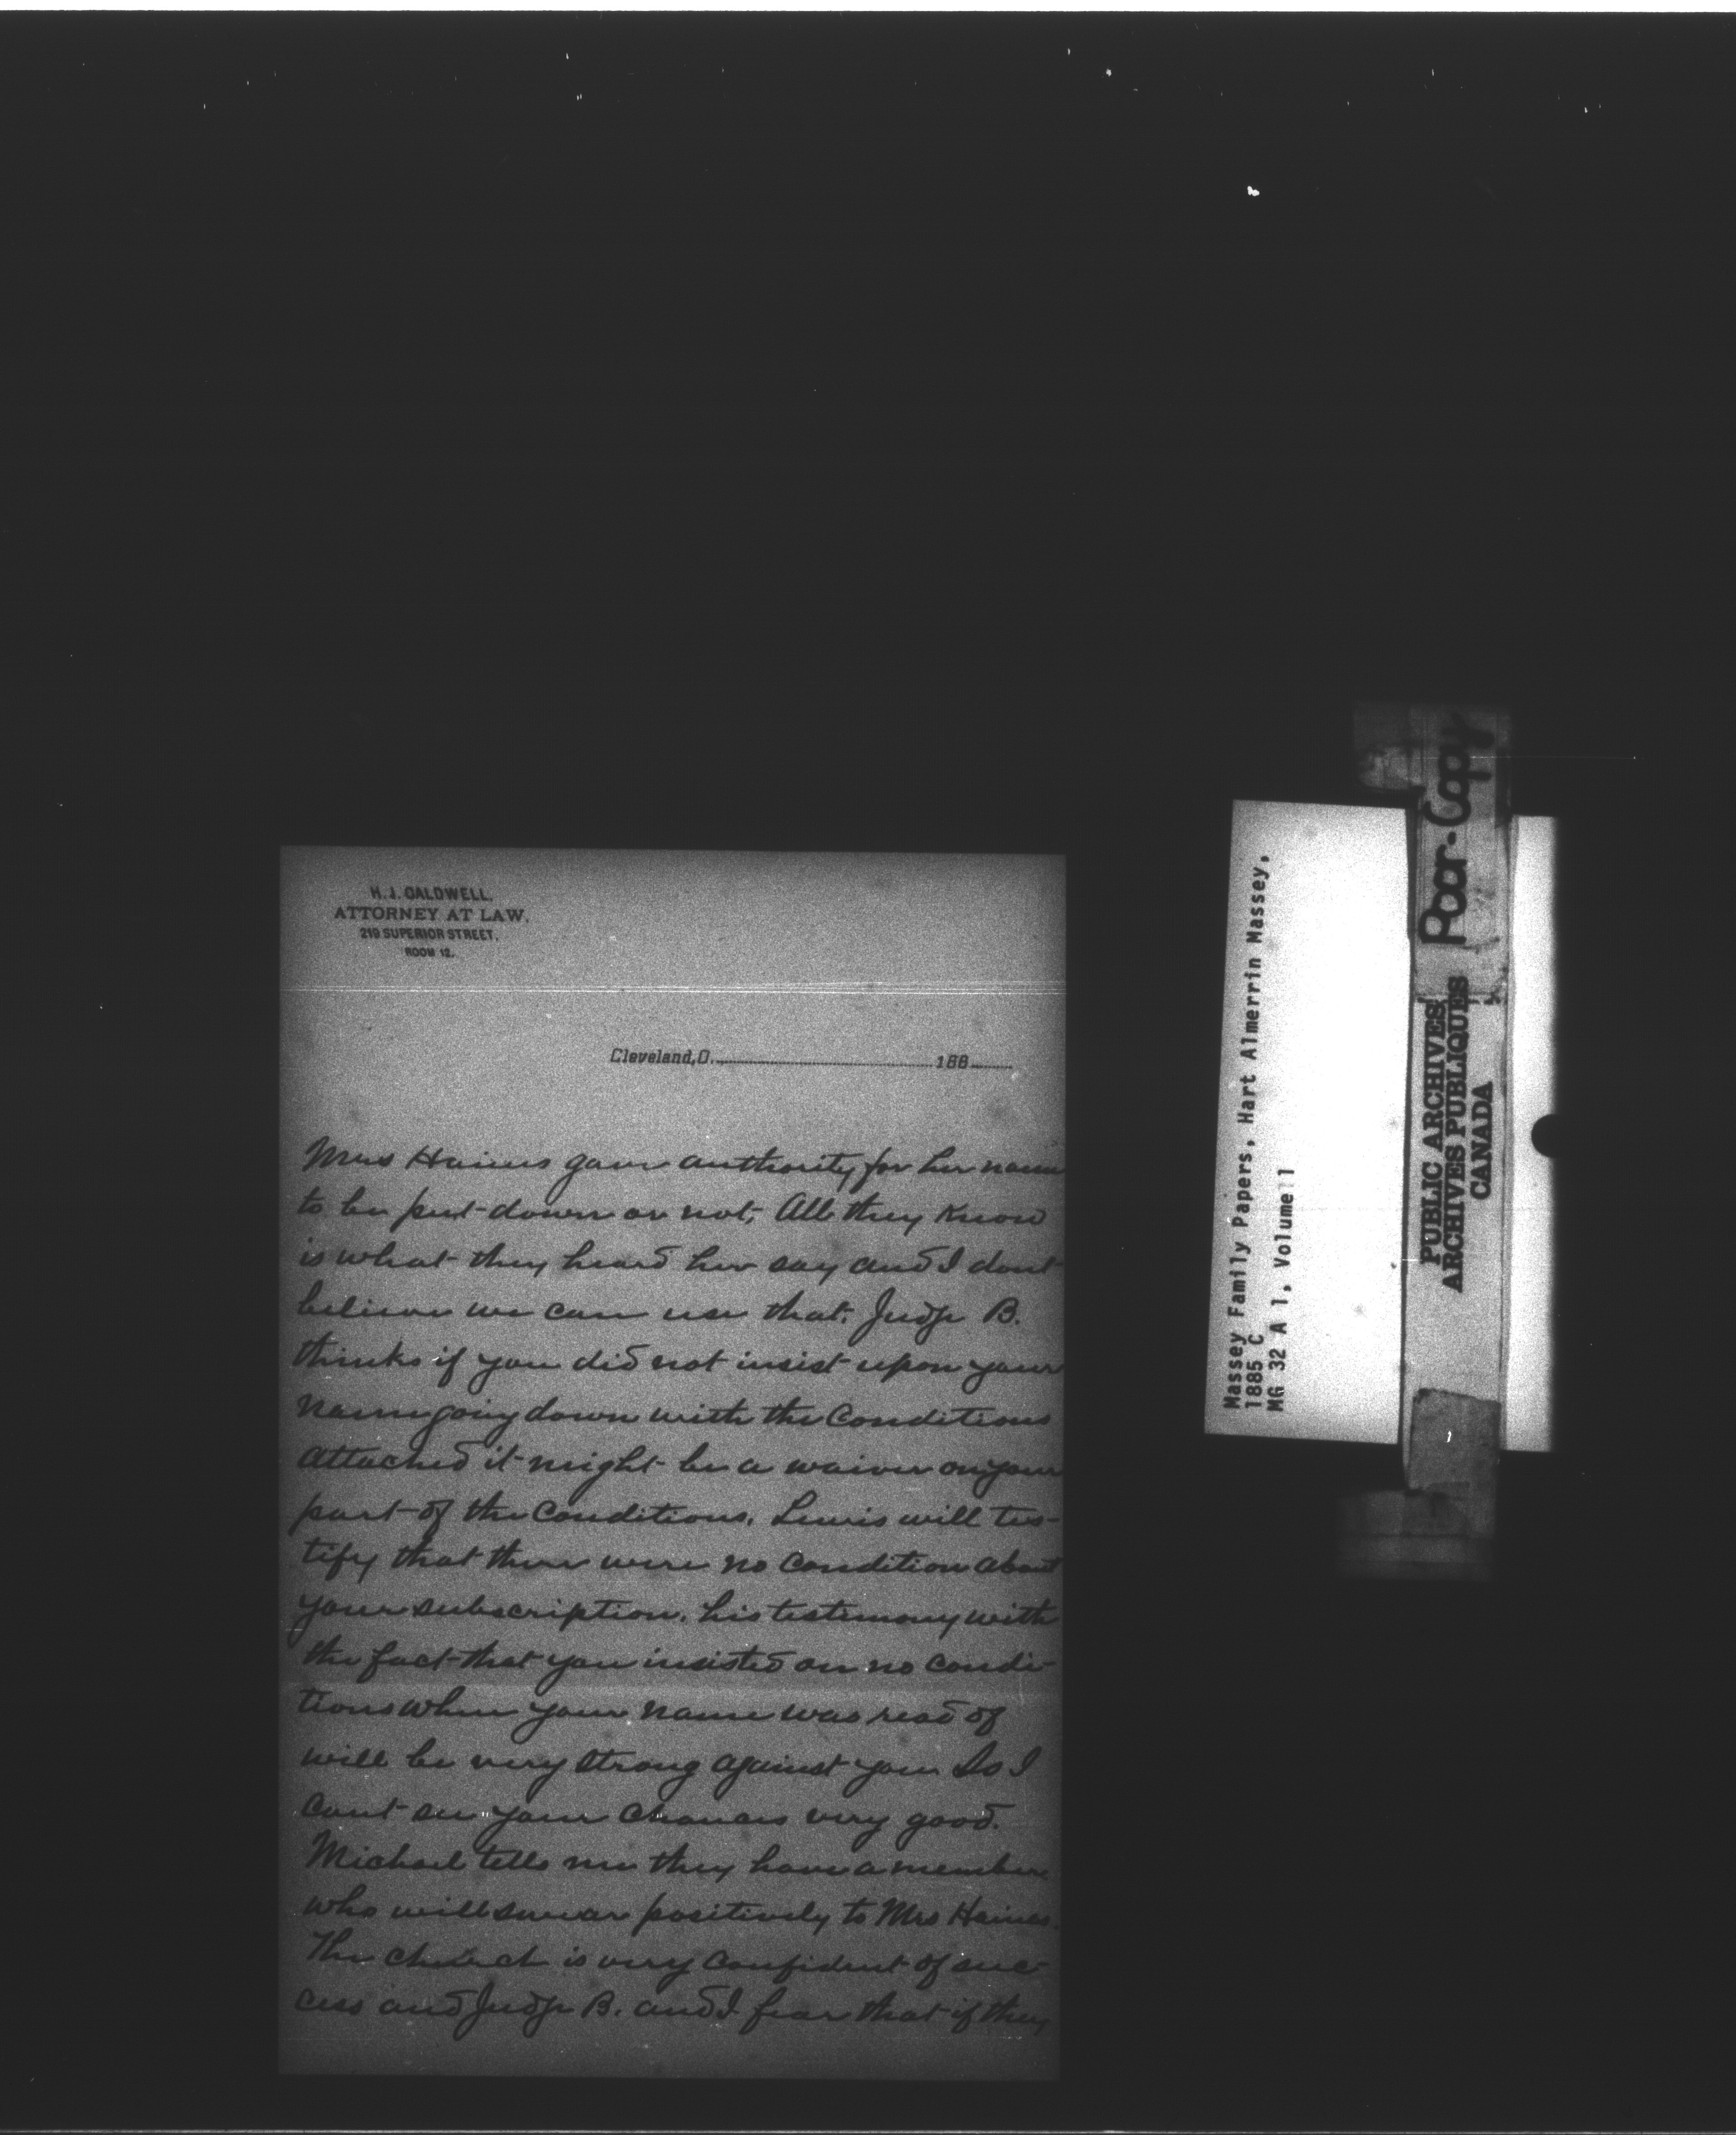 H. J. CALDWELL,
ATTORNEY AT LAW,
219 SUPERIOR STREET,
ROOM 12.
Cleveland, O. 188
Mrs Haines gave authority for her name
to be put down or not, All they Know
is what they heard her say and I dont
believe we can use that. Judge B.
thinks if you did not insist upon your
name going down with the Conditions
attached it might be a waiver on your
part of the Conditions. Lewis will tes-
tify that there were no Condition about
your subscription, his testimony with
the fact that you insisted on no Condi-
tions when your name was read of
will be very strong against you So I
cant see your chances very good.
Michael tells me they have a member
who will swear positively to Mrs Haines.
The church is very Confident of suc-
cess and Judge B. and I fear that if they
Massey Family Papers, Hart Almerrin Massey,
1885 C
MG 32 A 1, Volume 1
Poor-Copy
PUBLIC ARCHIVES
ARCHIVES PUBLIQUES
CANADA